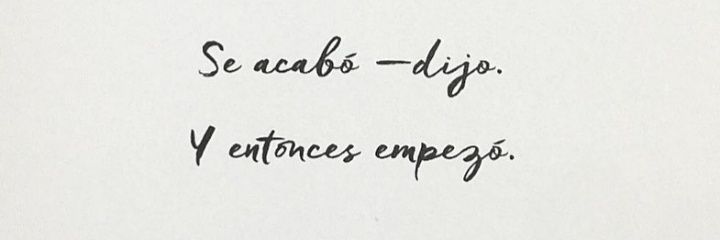 Se acabó —dijo.
Y entonces empezó.